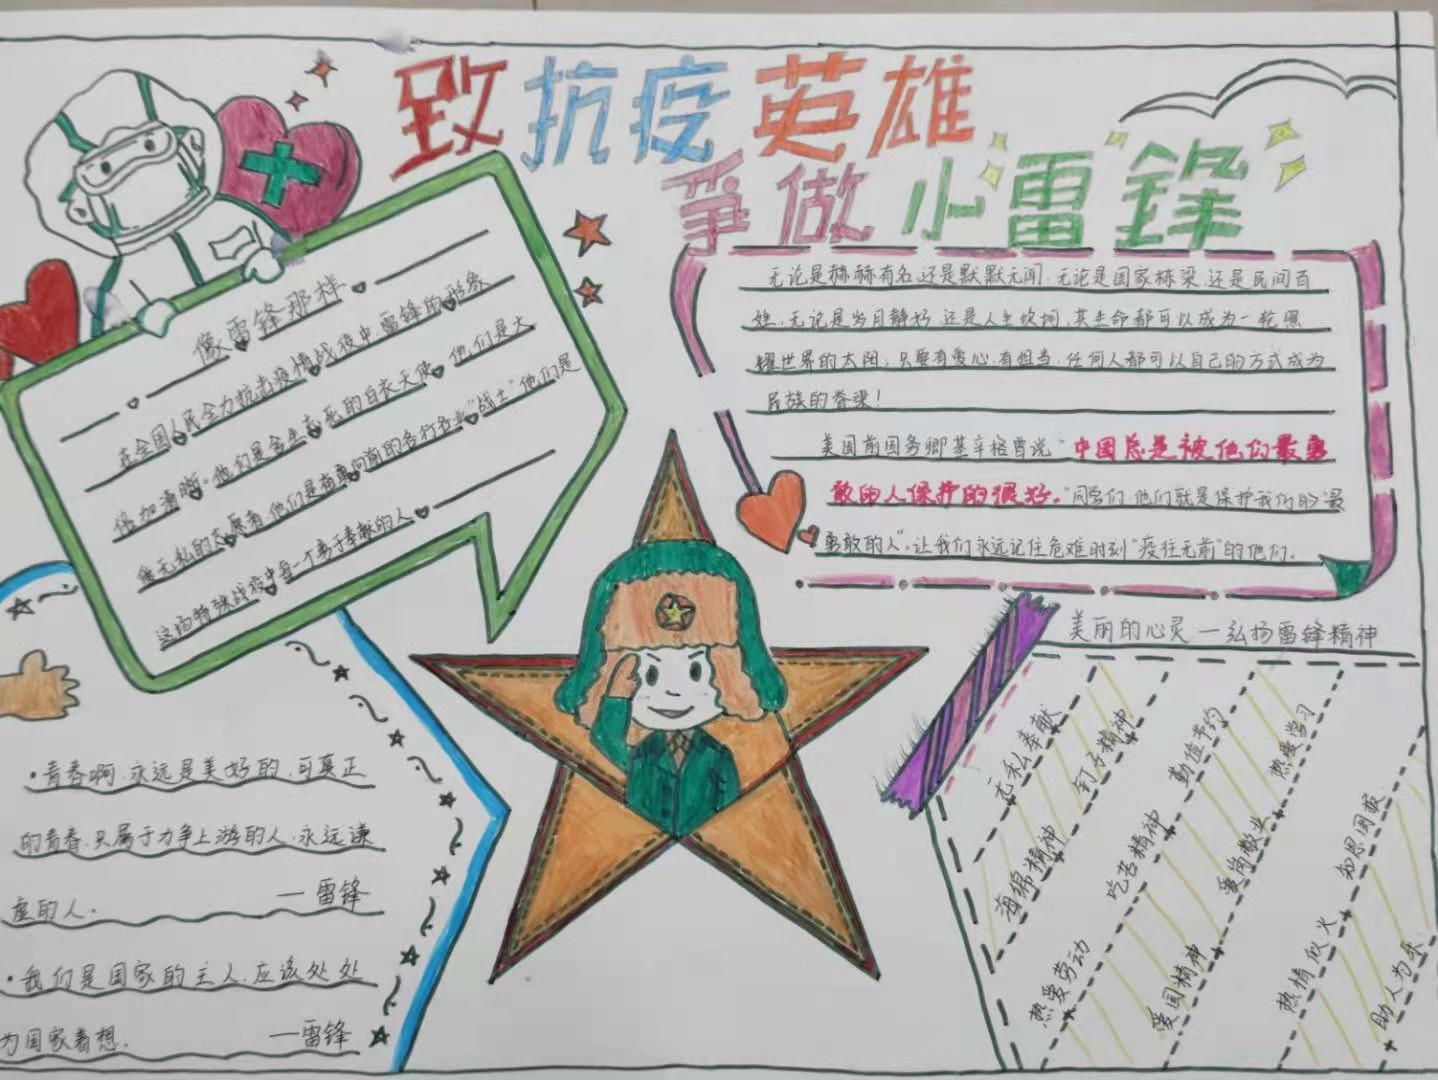 致抗疫英雄
争做小雷锋
像雷锋那样
在全国人民全力抗击疫情战役中雷锋的形象
倍加清晰。他们是舍生忘死的白衣天使，他们是大
爱无私的志愿者，他们是有勇向前的各行各业“战士”他们是
这场特殊战役中每一个勇于奉献的人
无论是赫赫有名还是默默无闻，无论是国家栋梁，还是民间百
姓，无论是岁月静好，还是人生坎坷，其生命都可以成为一轮照
耀世界的太阳，只要有爱心，有担当，任何人都可以自己的方式成为
民族的脊梁！
美国前国务卿基辛格曾说“中国总是被他们最勇
敢的人保护的很好。”同学们，他们就是保护我们的“最
勇敢的人”。让我们永远记住危难时刻“疫往无前”的他们。
美丽的心灵—弘扬雷锋精神
无私奉献
钉子精神
勤俭节约
热爱学习
海绵精神
吃苦精神
爱岗敬业
知恩图报
热爱劳动
爱国精神
热情似火
助人为乐
·青春啊，永远是美好的，可真正
的青春，只属于力争上游的人，永远谦
虚的人。
—雷锋
·我们是国家的主人，应该处处
为国家着想。
—雷锋